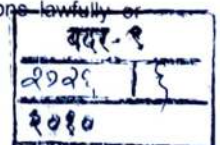 ons lawfully or
बदर - ९
२७२६ | ६
२०१०